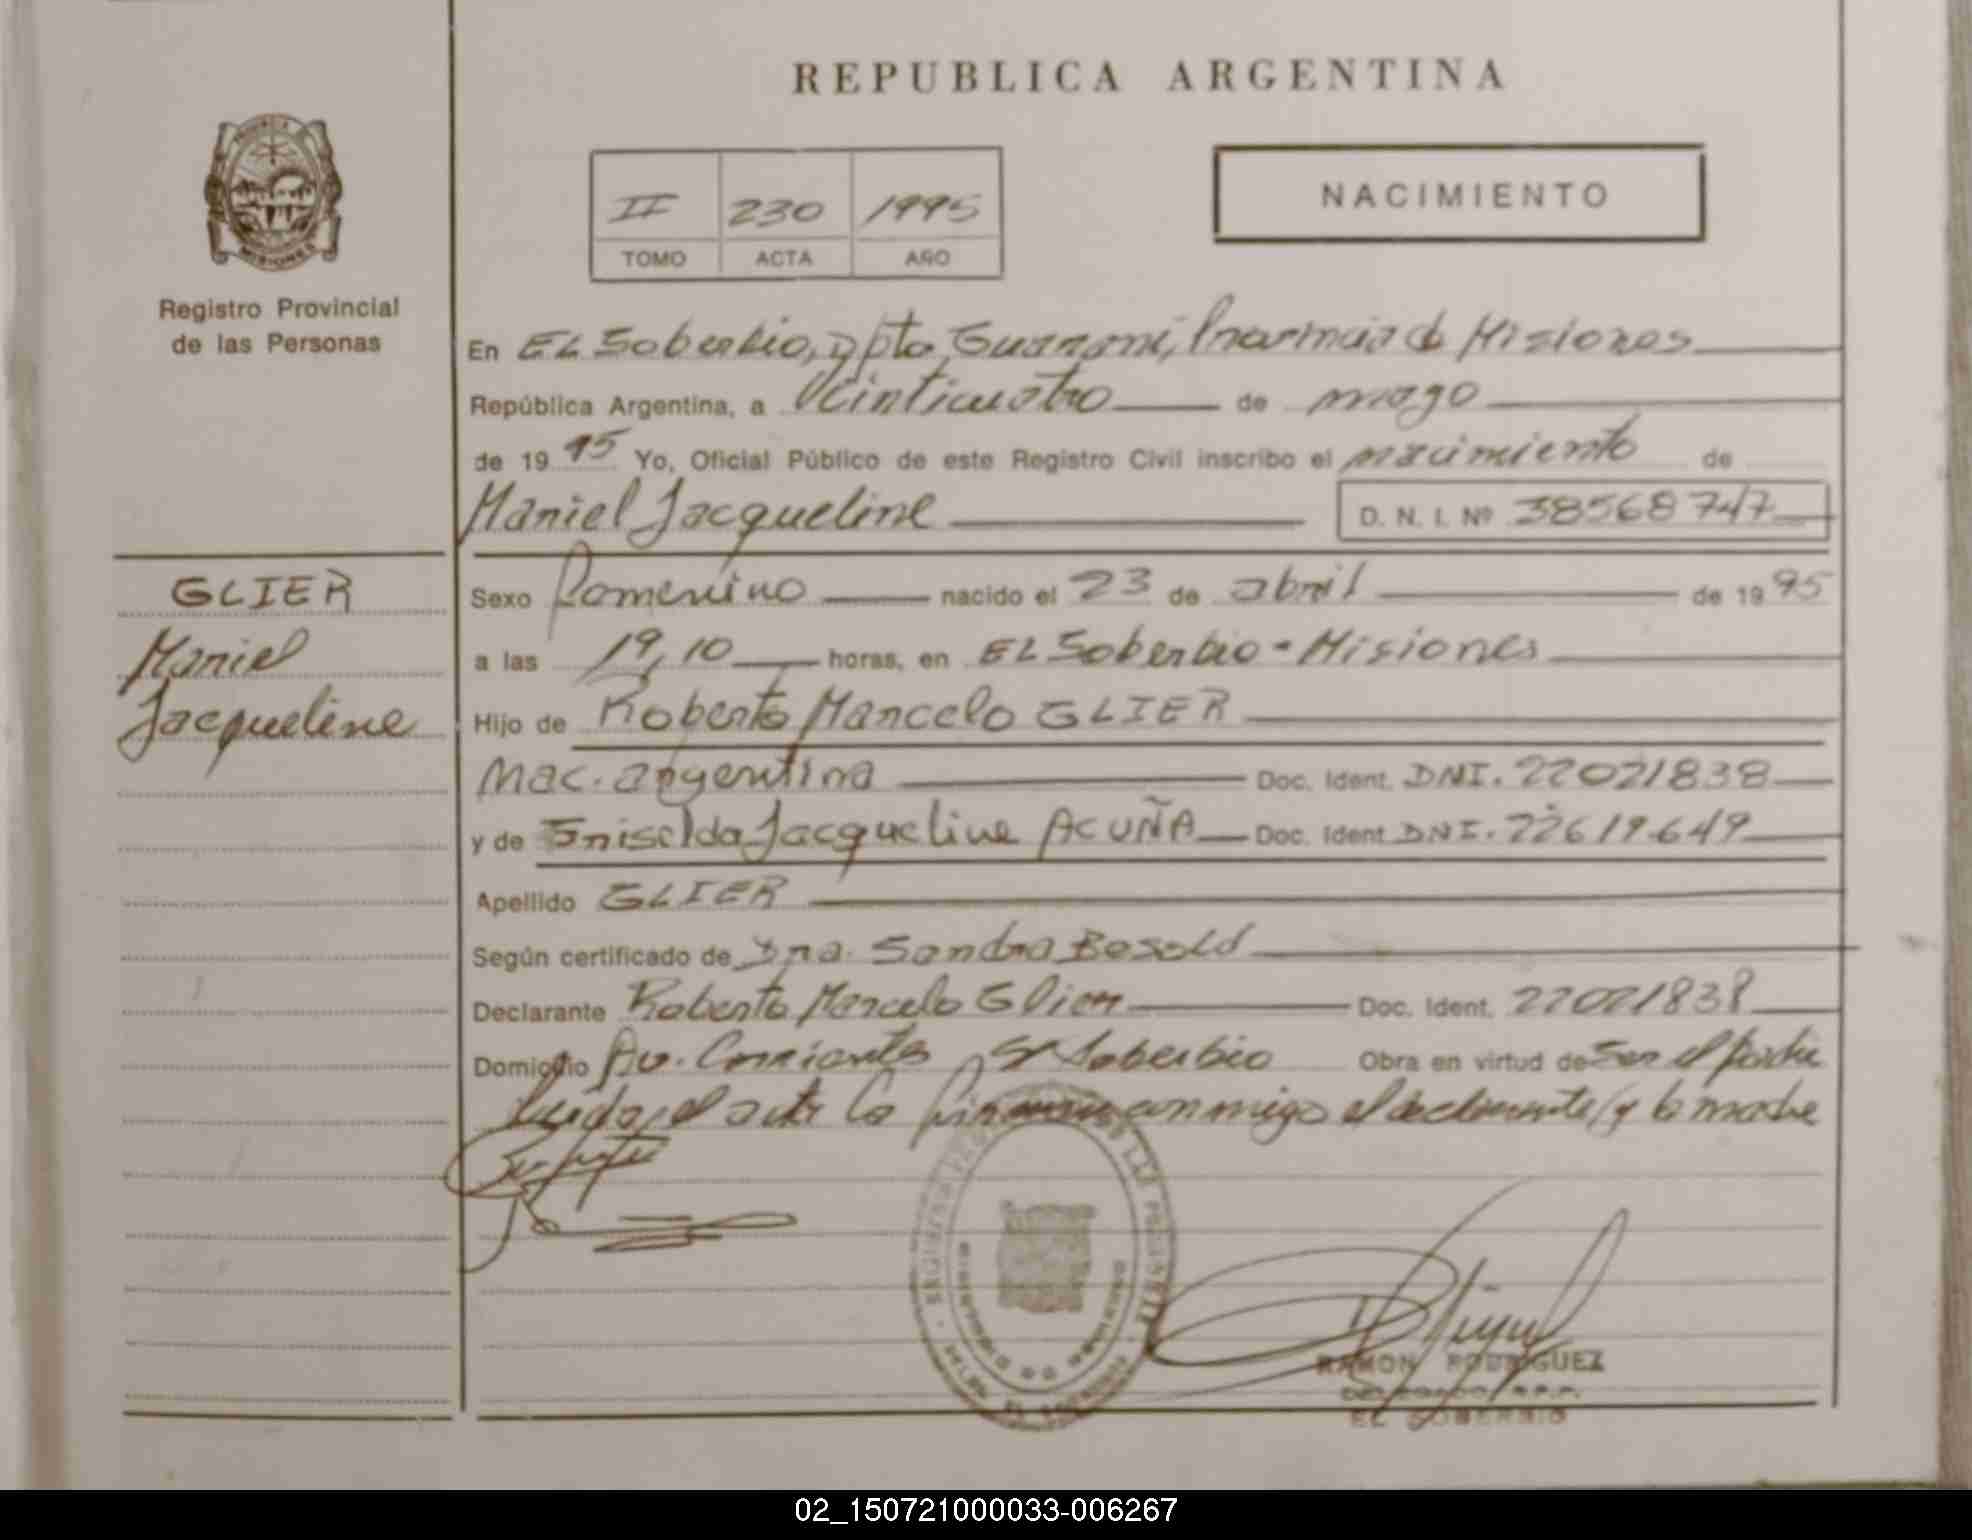 REPUBLICA ARGENTINA
NACIMIENTO
II 230 1995
TOMO ACTA AÑO
MISIONES
Registro Provincial
de las Personas
En EL Soberbio, Dpto Guaraní, Provincia de Misiones
República Argentina, a Veinticuatro de mayo
de 1995 Yo, Oficial Público de este Registro Civil inscribo el nacimiento de
Mariel Jacqueline D. N. I. Nº 38568747
GLIER
Mariel
Jacqueline
Sexo Femenino nacido el 23 de abril de 1995
a las 19,10 horas, en EL Soberbio - Misiones
Hijo de Roberto Marcelo GLIER
Nac. argentina Doc. Ident. DNI. 22021838
y de Griselda Jacqueline ACUÑA Doc. Ident. DNI. 22619649
Apellido GLIER
Según certificado de Dra. Sandra Besold
Declarante Roberto Marcelo Glier Doc. Ident. 22021838
Domicilio Av. Corrientes El Soberbio Obra en virtud de Ser el padre
Leida el acta la firman conmigo el declarante y la madre
RAMON RODRIGUEZ
DELEGADO R.P.P.
EL SOBERBIO
02_150721000033-006267